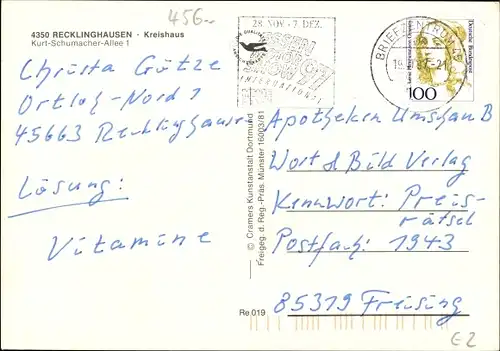 456.-
4350 RECKLINGHAUSEN · Kreishaus
Kurt-Schumacher-Allee 1
Christa Götze
Ortloh-Nord 1
45663 Recklinghausen
Lösung:
Vitamine
28. NOV - 7. DEZ.
ESSEN
97
INTERNATIONAL
BRIEFZENTRUM 45
Deutsche Bundespost
100
© Cramers Kunstanstalt Dortmund
Freigeg. d. Reg.-Präs. Münster 16003/81
Re 019
Apotheken Umschau B
Wort & Bild Verlag
Kennwort: Preis-
rätsel
Postfach: 1943
85319 Freising
E2